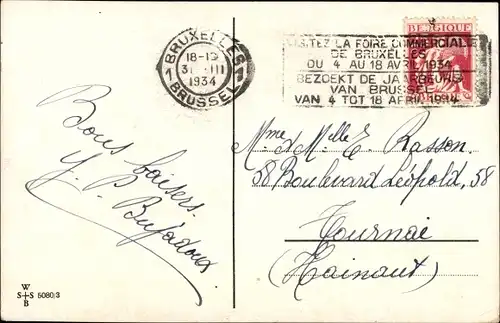 BRUXELLES 1
18-19
31 III
1934
1 BRUSSEL
VISITEZ LA FOIRE COMMERCIALE
DE BRUXELLES
DU 4 AU 18 AVRIL 1934
BEZOEKT DE JAARBEURS
VAN BRUSSEL
VAN 4 TOT 18 APRIL 1934
BELGIQUE
Bons baisers.
Y. P. Bujadoux
Mme & Mlle E. Rasson
58 Boulevard Léopold, 58
Tournai
(Hainaut)
W
S+S 5080/3
B